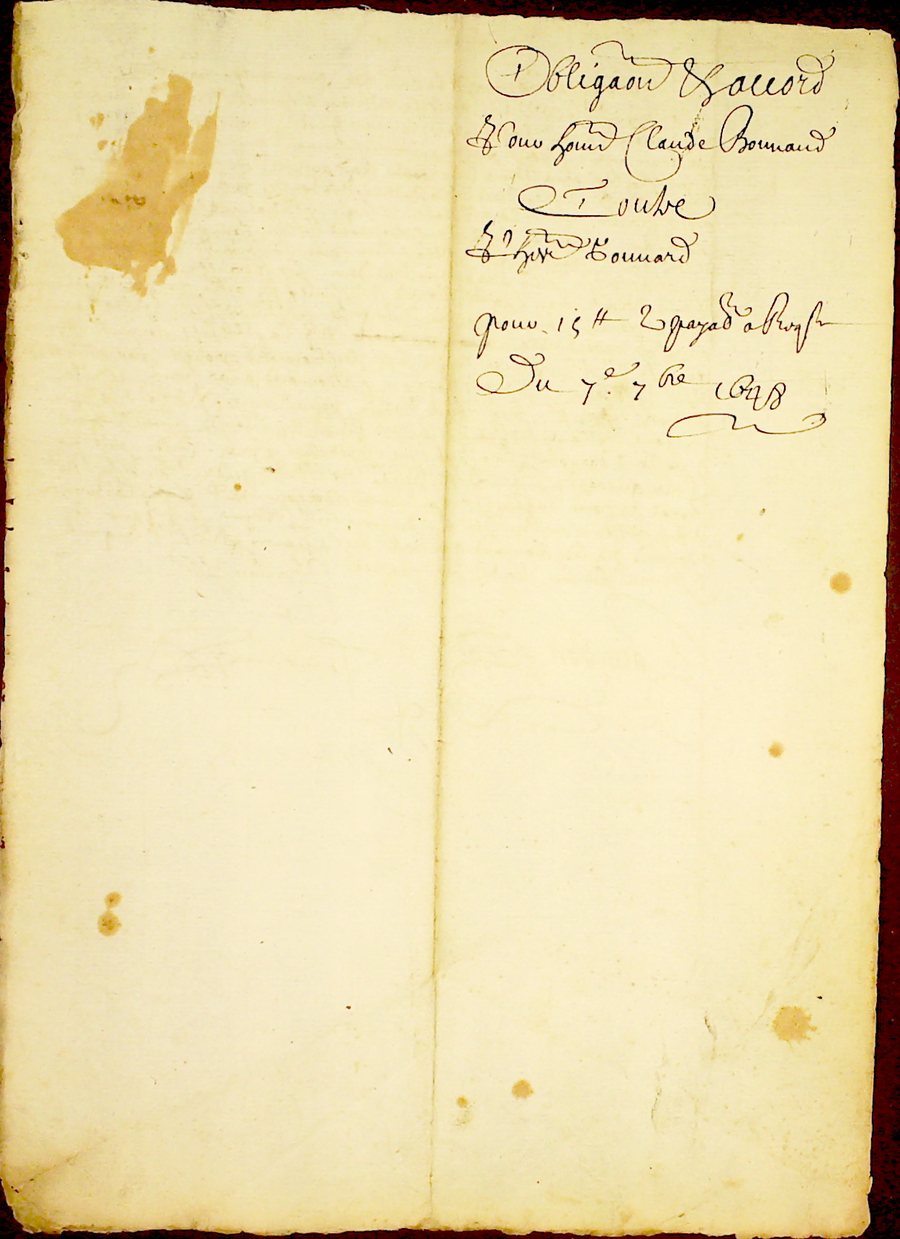 Obligaon & accord
Pour hond Claude Bonnard
Contre
Bonnard
pour 15 ₶ payab a
Du 7e. 7bre 1648